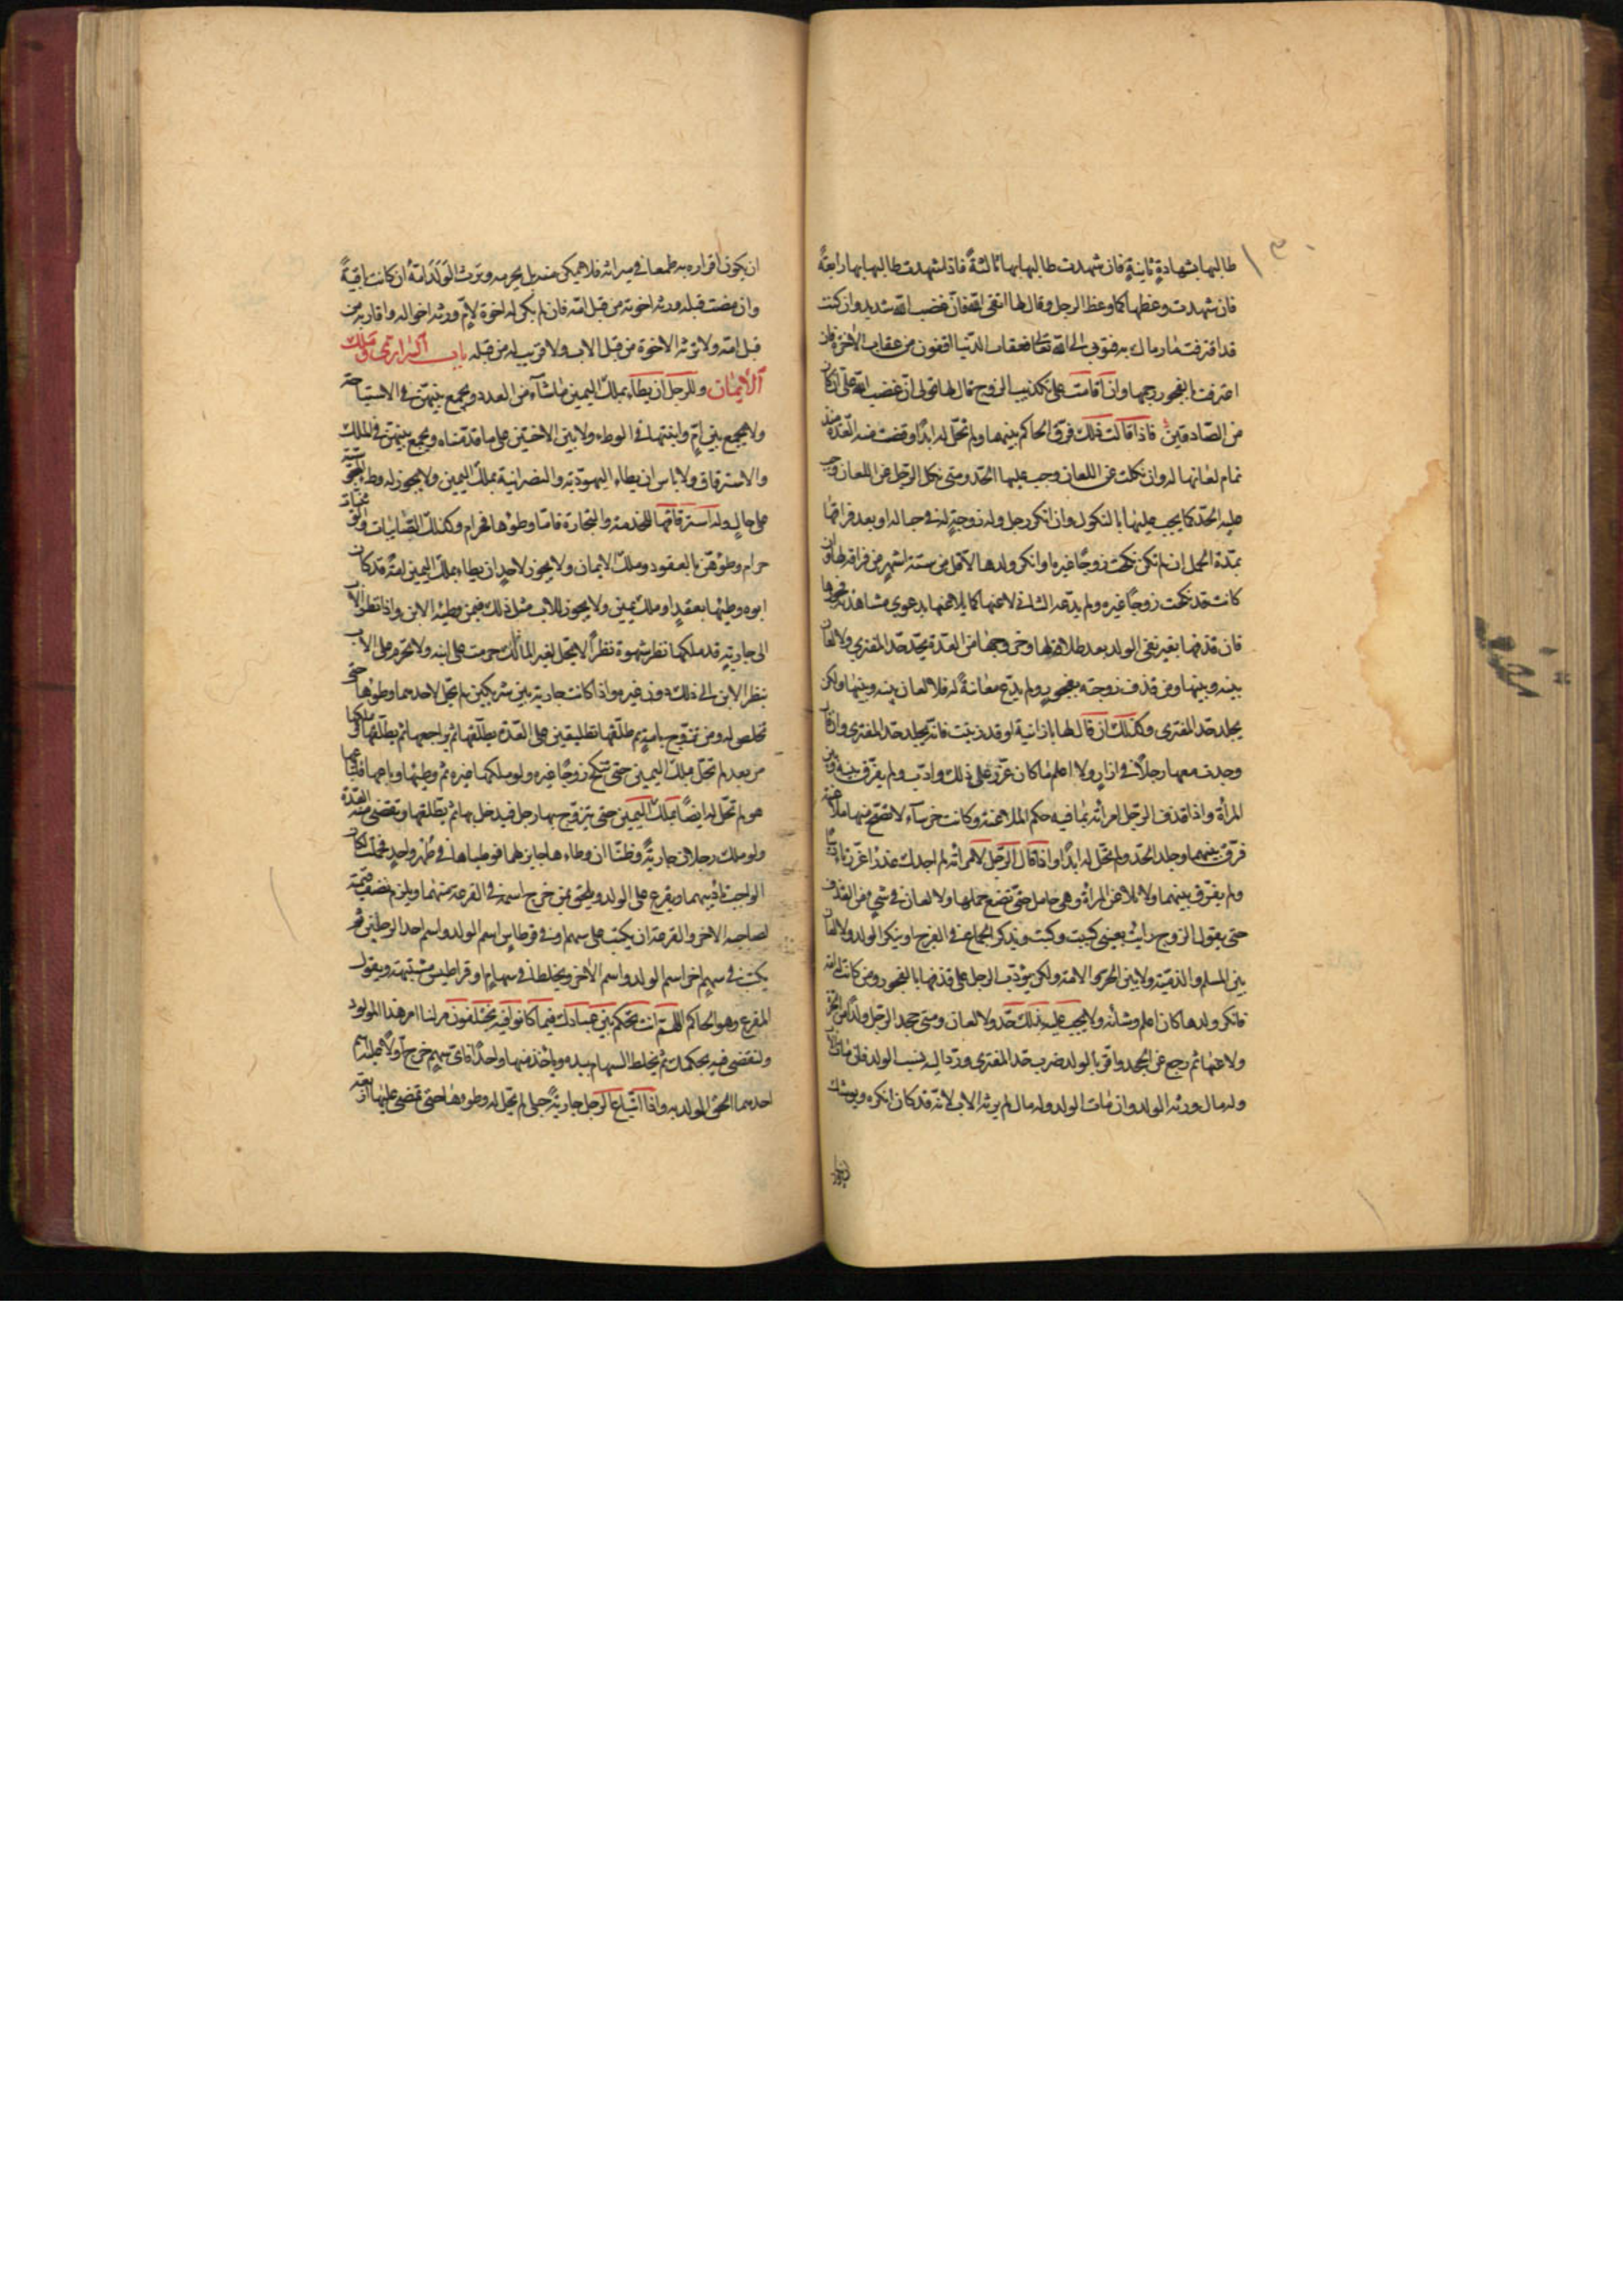 طالبها بشهادةٍ ثانيةٍ فان شهدت طالبها بها ثالثةً فاذا شهدت طالبها بها رابعةً
فان شهدت وعظها كما وعظ الرجل وقال لها اتقى الله فان غضب الله شديد وان كنت
قد اقترفت ما رماك به فتوبى الى الله تعالى فعقاب الدنيا اهون من عقاب الاخرة فان
اعترفت بالفجور رجمها وان اقامت على تكذيب الزوج قال لها قولى ان غضب الله علىّ ان كان
من الصّادقين فاذا قالت ذلك فرق الحاكم بينهما ولم تحلّ له ابدًا وقضت منه العدّة منذ
تمام لعانها له وان نكلت عن اللعان وجب عليها الحدّ ومتى نكل الرجل عن اللعان وجب
عليه الحدّ كما يجب عليها بالنكول وان انكر رجل ولد زوجةٍ له فى حباله او بعد فراقها
بمدّة الحمل ان لم تكن نكحت زوجًا غيره او انكر ولدها لاقل من ستة اشهر من فراقه لها وان
كانت قد نكحت زوجًا غيره ولم يدّعه الثانى لاعنها كما يلاعنها بدعوى مشاهدة فجورها
فان قذفها بغير نفى الولد بعد طلاقه لها وخروجها من العدة يحدّ حدّ المفترى ولا لعان
بينه وبينها ومن قذف زوجته بفجور ولم يدّع معانةً له فلا لعان بينه وبينها ولكن
يجلد حدّ المفترى وكذلك ان قال لها يا زانية او قد زنيت فانه يجلد حدّ المفترى وان قال
وجدت معها رجلاً فى ازار ولا اعلم ما كان عزّر على ذلك وادّب ولم يفرّق بينه وبين
المرأة واذا قذف الرّجل امرأته بما فيه حكم الملاعنة وكانت خرساء لا تصح منها ملاعنة
فرّق بينهما وجلد الحدّ ولم تحلّ له ابدًا واذا قال الرّجل لامرأته لم اجدك عذراء عزّر تاديبًا
ولم يفرّق بينهما ولا تلاعن المرأة وهى حامل حتّى تضع حملها ولا لعان فى شىء من القذف
حتى يقول الزوج رايت بعينى كيت وكيت ويذكر الجماع فى الفرج او ينكر الولد ولا لعان
بين المسلم والذميّة ولا بين الحر والامة ولكن يؤدّب الرجل على قذفها بالفجور ومن كانت له امة
فانكر ولدها كان اعلم وشأنه ولا يجب عليه بذلك حدّ ولا لعان ومتى جحد الرّجل ولدًا من الحرّة
ولاعنها ثم رجع عن الجحد واقر بالولد ضرب حدّ المفترى وردّ اليه نسب الولد فان مات الاب
وله مال ورثه الولد وان مات الولد وله مال لم يرثه الاب لانّه قد كان انكره ويوشك
ان يكون اقراره به طمعا فى ميراثه فلا يمكن منه بل يحرمه وترث الولد امّهُ ان كانت باقيةً
وان مضت قبله ورثه اخوته من قبل امّه فان لم يكن له اخوة لامّ ورثه اخواله واقاربه من
قبل امّه ولا ترثه الاخوة من قبل الاب ولا قريب له من قبله باب السرارى وملك
الايمان وللرجل ان يطاء بملك اليمين ما شاء من العدد ويجمع بينهنّ فى الاستباحة
ولا يجمع بين امّ وابنتها فى الوطء ولا بين الاختين على ما قدّمناه ويجمع بينهنّ فى الملك
والاسترقاق ولا باس ان يطاء اليهوديّة والنصرانية بملك اليمين ولا يجوز له وطء المجوسية
على حالٍ وله استرقاقها للخدمة والتجارة فامّا وطؤها فحرام وكذلك الصّابيات والوثنيات
حرام وطؤهنّ بالعقود وملك الايمان ولا يجوز لاحدٍ ان يطاء بملك اليمين امةً قد كان
ابوه وطيها بعقدٍ او ملك يمين ولا يجوز للاب مثل ذلك فيمن وطيه الابن واذا نظر الاب
الى جاريةٍ قد ملكها نظر شهوة نظرًا لا يحل لغير المالك حرمت على ابنه ولا تحرم على الاب
بنظر الابن الى ذلك دون غيره واذا كانت جارية بين شريكين لم يحلّ لاحدهما وطؤها حتى
تخلص له ومن تزوّج بامةٍ ثم طلّقها تطليقين على العدّة يطلّقها ثم يراجعها ثم يطلّقها وملكها
من بعد لم تحلّ بملك اليمين حتى تنكح زوجًا غيره ولو ملكها غيره ثم وطيها وباعها فابتاعها
هو لم تحلّ له ايضًا بملك اليمين حتى يتزوج بها رجل فيدخل بها ثم يطلقها وتقضى منه العدّة
ولو ملك رجلان جاريةً وظنّا ان وطاءها جايز لهما فوطياها فى طهر واحد فحملت لكان
الواجب تاديبهما ويقرع على الولد ويلحق بمن خرج اسمه فى القرعة منهما ويلزم نصف قيمته
لصاحبه الاخر والقرعة ان يكتب على سهم او فى قرطاس اسم الولد واسم احد الرجلين ثم
يكتب فى سهم اخر اسم الولد واسم الاخر ويخلطا فى سهام او قراطيس مشتبهة ويقول
المقرع وهو الحاكم اللهم انت تحكم بين عبادك فيما كانوا فيه يختلفون فبيّن لنا امر هذا المولود
ولنقضى فيه بحكمك ثم يخلط السهام بيده وياخذ منها واحدًا فاىّ سهم خرج اولاً عليه اسم
احدهما الحق الولد به واذا ابتاع الرجل جاريةً حبلى لم يحلّ له وطوها حتى تمضى عليها اربعة